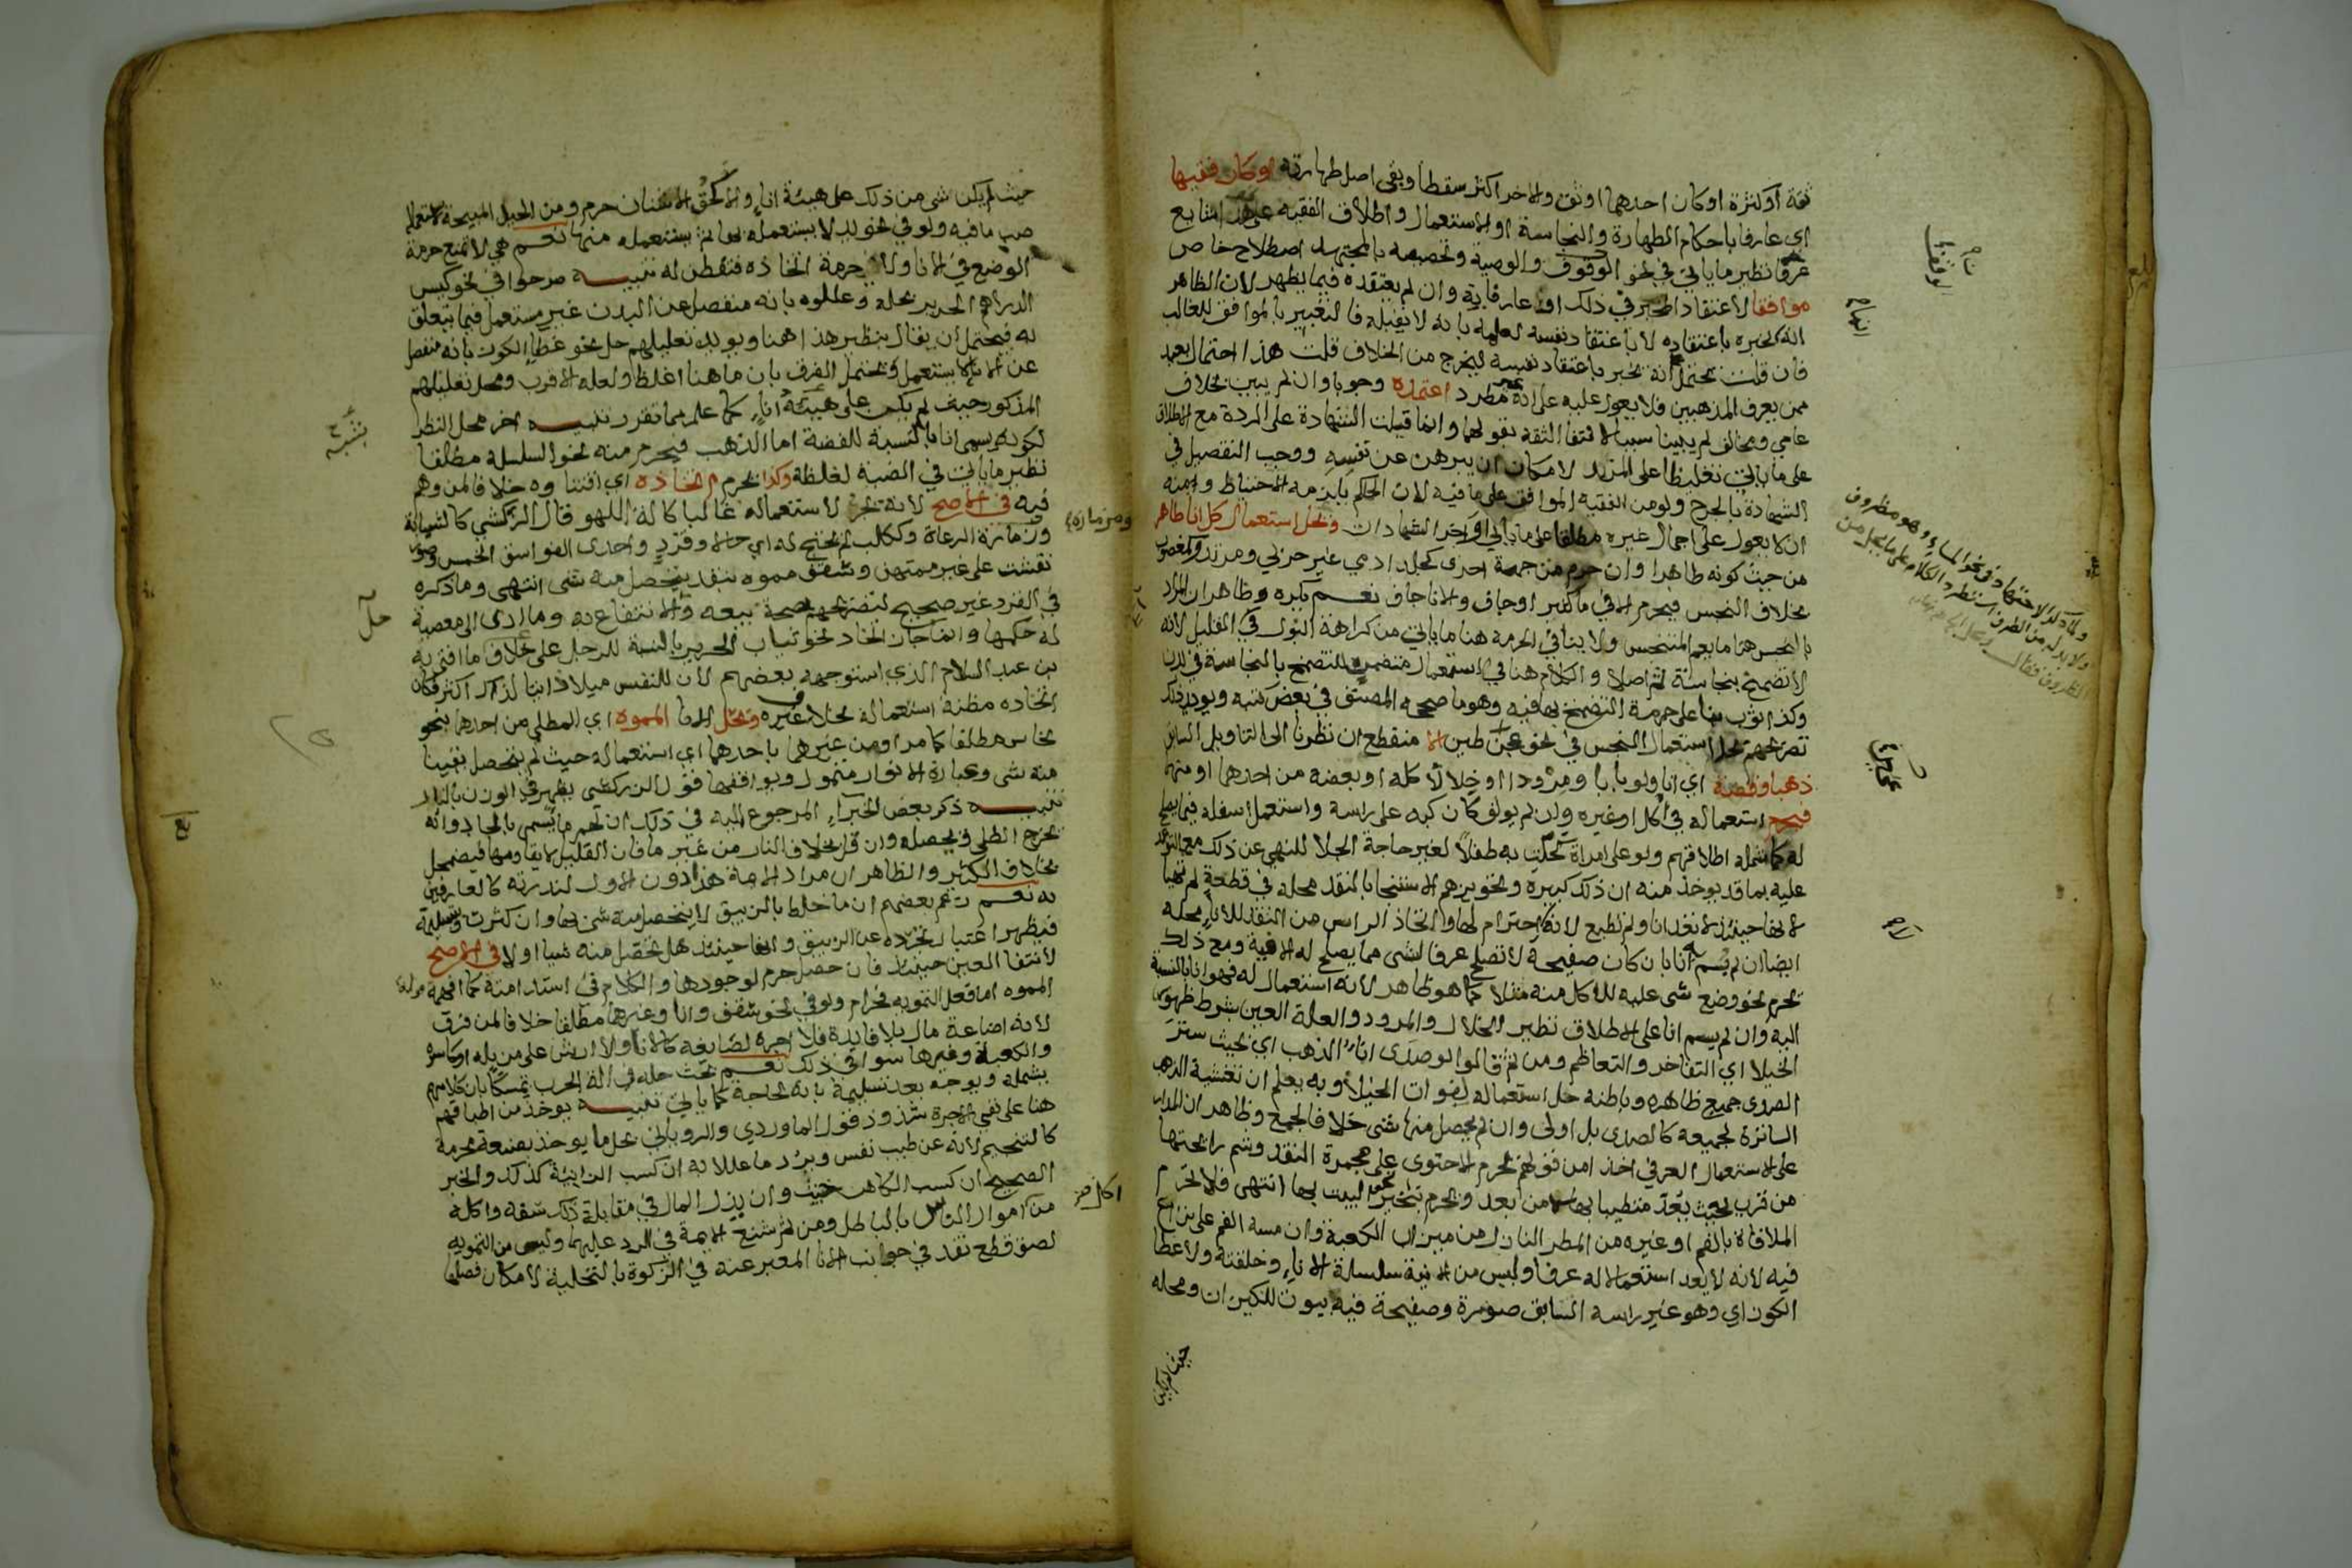 ثقة او كثرة او كان احدهما اوثق والاخر اكثر سقطا وبقى اصل طهارته او كان فقيها
اي عارفا باحكام الطهارة والنجاسة او الاستعمال واطلاق الفقيه على هذا شايع
عرفا نظير ما ياتي في نحو الوقوف والوصية وتخصيصه بالمجتهد اصطلاح خاص
موافقا لاعتقاد المخبر في ذلك او عارفا به وان لم يعتقده فيما يظهر لان الظاهر
انه اخبره باعتقاده لا باعتقاد نفسه لعلمه بانه لا يقبله فالتعبير بالموافق للغالب
فان قلت يحتمل انه يخبر باعتقاد نفسه ليخرج من الخلاف قلت هذا احتمال بعيد
ممن يعرف المذهبين فلا يعول عليه على انه غير مطرد اعتمده وجوبا وان لم يبين بخلاف
عامي ومخالف لم يبينا سببا لانتفا الثقة بقولهما وانما قبلت الشهادة على الردة مع الاطلاق
على ما ياتي تغليظا على المرتد لامكان ان يبرهن عن نفسه ووجب التفصيل في
الشهادة بالجرح ولو من الفقيه الموافق على ما فيه لان الحاكم يلزمه الاحتياط ومنه
ان لا يعول على اجمال غيره مطلقا على ما ياتي اواخر الشهادات ويحل استعمال كل انا طاهر
من حيث كونه طاهرا وان حرم من جهة اخرى كجلد ادمي غير حربي ومرتد وكمغصوب
بخلاف النجس فيحرم الا في ما كثير او جاف والانا جاف نعم يكره وظاهر ان المراد
بالنجس هنا ما يعم المتنجس ولا ينافي الحرمة هنا ما ياتي من كراهة البول في القليل لانه
لا تضمخ بنجاسة ثم اصلا والكلام هنا في استعمال متضمن للتضمخ بالنجاسة في بدن
وكذا ثوب بنا على حرمة التضمخ بها فيه وهو ما صححه المصنف في بعض كتبه ويويد ذلك
تصريحهم بحل استعمال النجس في نحو عجن طين الا منقطع ان نظرنا الى التاويل السابق
ذهبا وفضة اي انا ولو بابا ومرودا او خلالا كله او بعضه من احدهما او منهما
فيحرم استعماله في اكل او غيره وان لم يولف كان كبه على راسه واستعمل اسفله فيما يصلح
له كما شمله اطلاقهم ولو على امراة تحلبت به طفلا لغير حاجة الجلا للنهي عن ذلك مع التوعد
عليه بما قد يوخذ منه ان ذلك كبيرة وتجويزهم الاستنجا بالنقد محله في قطعة لم تهيا
لانها حينئذ لا تعد انا ولم تطبع لانه لا احترام لها واتخاذ الراس من النقد للانا محله
ايضا ان لم يسم انا بان كان صفيحة لا تصلح عرفا لشى مما يصلح له الانية ومع ذلك
يحرم نحو وضع شى عليه للاكل منه مثلا كما هو ظاهر لانه استعمال له فهو انا بالنسبة
اليه وان لم يسم انا على الاطلاق نظير الخلال والمرود والعلة العين بشرط ظهور
الخيلا اي التفاخر والتعاظم ومن ثم قالوا لو صدى انا الذهب اي بحيث ستر
الصدى جميع ظاهره وباطنه حل استعماله لفوات الخيلا وبه يعلم ان تغشية الذهب
الساترة لجميعه كالصدى بل اولى وان لم يحصل منها شى خلافا لجمع وظاهر ان المدار
على الاستعمال العرفي اخذا من قولهم يحرم الاحتوى على مجمرة النقد وشم رائحتها
من قرب بحيث يعد متطيبا بها لا من بعد ويحرم تبخير نحو البيت بها انتهى فلا تحرم
الملاقاة بالفم او غيره من المطر النازل من ميزاب الكعبة وان مسه الفم على نزاع
فيه لانه لا يعد استعمالا له عرفا وليس من الانية سلسلة الانا وحلقته ولا غطا
الكوز اي وهو غير راسه السابق صورة وصفيحة فيه بيوت للكيزان ومحله
حيث لم يكن
ولما ذكر الاجتهاد في نحو الماء وهو مظروف
ولا بد له من الظرف استطرد الكلام على ما يحل من
الظروف فقال
حيث لم يكن شى من ذلك على هيئة اناء والا حرم ومن الحيل المبيحة لاستعمال
صب ما فيه ولو في نحو يد لا يستعمله بها ثم يستعمله منها نعم هي لا تمنع حرمة
الوضع في الانا ولا حرمة اتخاذه فتفطن له تنبيه صرحوا في نحو كيس
الدراهم الحرير بحله وعللوه بانه منفصل عن البدن غير مستعمل فيما يتعلق
به فيحتمل ان يقال بنظير هذا هنا ويويده تعليلهم حل نحو غطاء الكوز بانه منفصل
عن الانا لا يستعمل ويحتمل الفرق بان ما هنا اغلظ ولعله الاقرب ومحل تعليلهم
المذكور حيث لم يكن على هيئة اناء كما علم مما تقرر تنبيه اخر محل النظر
لكونه يسمى انا بالنسبة للفضة اما الذهب فيحرم منه نحو السلسلة مطلقا
نظير ما ياتي في الضبة لغلظه وكذا يحرم اتخاذه اي اقتناوه خلافا لمن وهم
فيه في الاصح لانه يجر لاستعماله غالبا كالة اللهو قال الزركشي كالشبابة
ومزمارة الرعاة وككلب لم يحتج له اي حالا وقرد واحدى الفواسق الخمس وصور
نقشت على غير ممتهن وسقف مموه بنقد يتحصل منه شى انتهى وما ذكره
في القرد غير صحيح لتصريحهم بصحة بيعه والانتفاع به وما ادى الى معصية
له حكمها وانما جاز اتخاذ نحو ثياب الحرير بالنسبة للرجل على خلاف ما افتى به
بن عبد السلام الذي استوجهه بعضهم لان للنفس ميلا ذاتيا لذاك اكثر فكان
اتخاذه مظنة استعماله بخلاف غيره ويحل الانا المموه اي المطلي من احدهما بنحو
نحاس مطلقا كما مر او من غيرهما باحدهما اي استعماله حيث لم يتحصل يقينا
منه شى وعبارة الانوار متمول ويوافقها قول الزركشي يظهر في الوزن بالنار
تنبيه ذكر بعض الخبراء المرجوع اليه في ذلك ان لهم ما يسمى بالحاد وانه
يخرج الطلي ويحصله وان قل بخلاف النار من غير ما فان القليل لا يقاومها فيضمحل
بخلاف الكثير والظاهر ان مراد الايمة هذا دون الاول لندرته كالعارفين
به نعم زعم بعضهم ان ما خلط بالزيبق لا يتحصل منه شى بها وان كثرت وبتسليمه
فيظهر اعتبار تجرده عن الزيبق وانها حينئذ هل يتحصل منه شيا او لا في الاصح
لانتفا العين حينئذ فان حصل حرم لوجودها والكلام في استدامته كما افهمه قوله
المموه اما فعل التمويه فحرام ولو في نحو سقف وانا وغيرهما مطلقا خلافا لمن فرق
لانه اضاعة مال بلا فايدة فلا اجرة لصايغه كالانا ولا ارش على مزيله او كاسره
والكعبة وغيرها سوا في ذلك نعم بحث حله في الة الحرب تمسكا بان كلامهم
يشمله ويوجه بعد تسليمه بانه لحاجة كما ياتي تنبيه يوخذ من اطباقهم
هنا على نفي الاجرة شذوذ قول الماوردي والروياني بحل ما يوخذ بصنعة محرمة
كالتنجيم لانه عن طيب نفس ويرد ما عللا به ان كسب الزانية كذلك والخبر
الصحيح ان كسب الكاهن خبيث وان بذل المال في مقابلة ذلك سفه واكله
من اموال الناس بالباطل ومن ثم شنع الايمة في الرد عليهما وليس من التمويه
لصق قطع نقد في جوانب الانا المعبر عنه في الزكوة بالتحلية لامكان فصلها